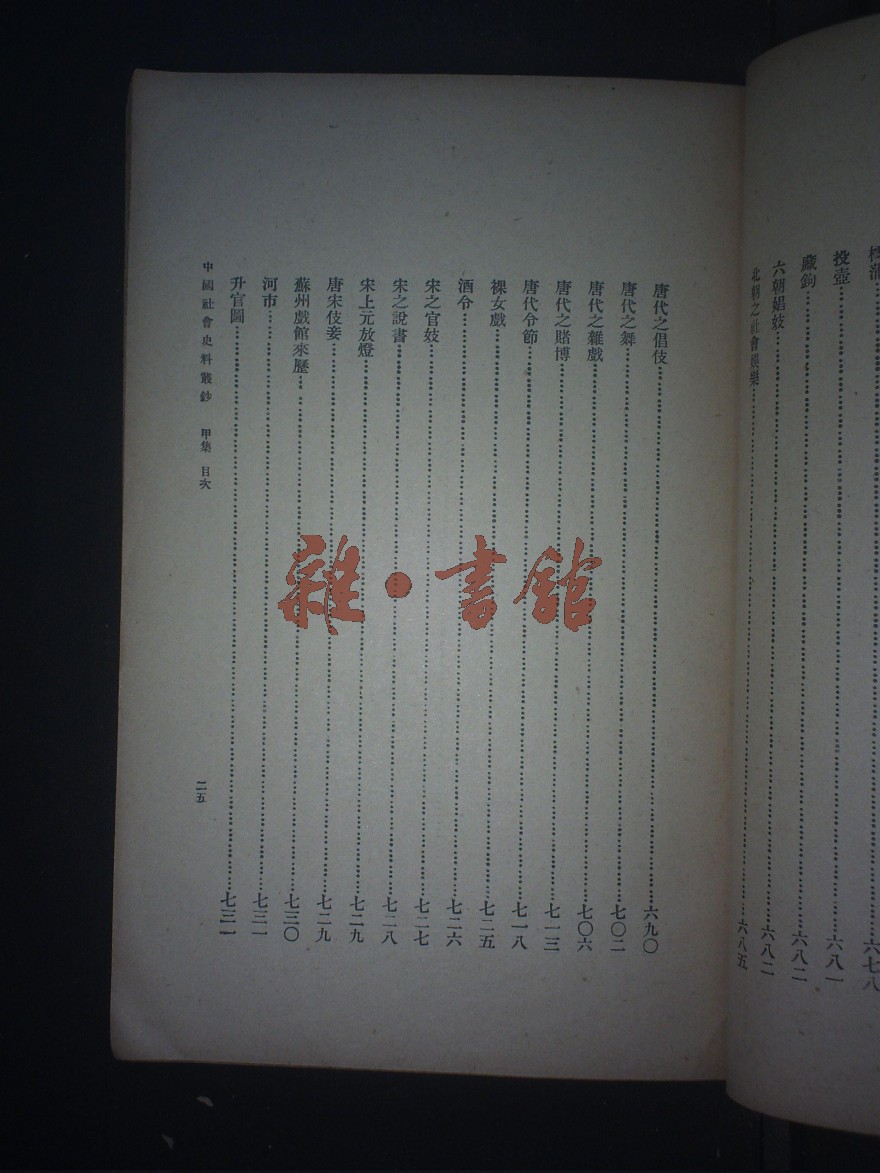 投壺……六八一
藏鉤……六八二
六朝娼妓……六八二
北朝之社會娛樂……六八五
唐代之倡伎……六九〇
唐代之舞……七〇二
唐代之雜戲……七〇六
唐代之賭博……七一三
唐代令節……七一八
裸女戲……七二五
酒令……七二六
宋之官妓……七二七
宋之說書……七二八
宋上元放燈……七二九
唐宋伎妾……七二九
蘇州戲館來歷……七三〇
河市……七三一
升官圖……七三一
中國社會史料叢鈔 甲集 目次
二五
雜·書館